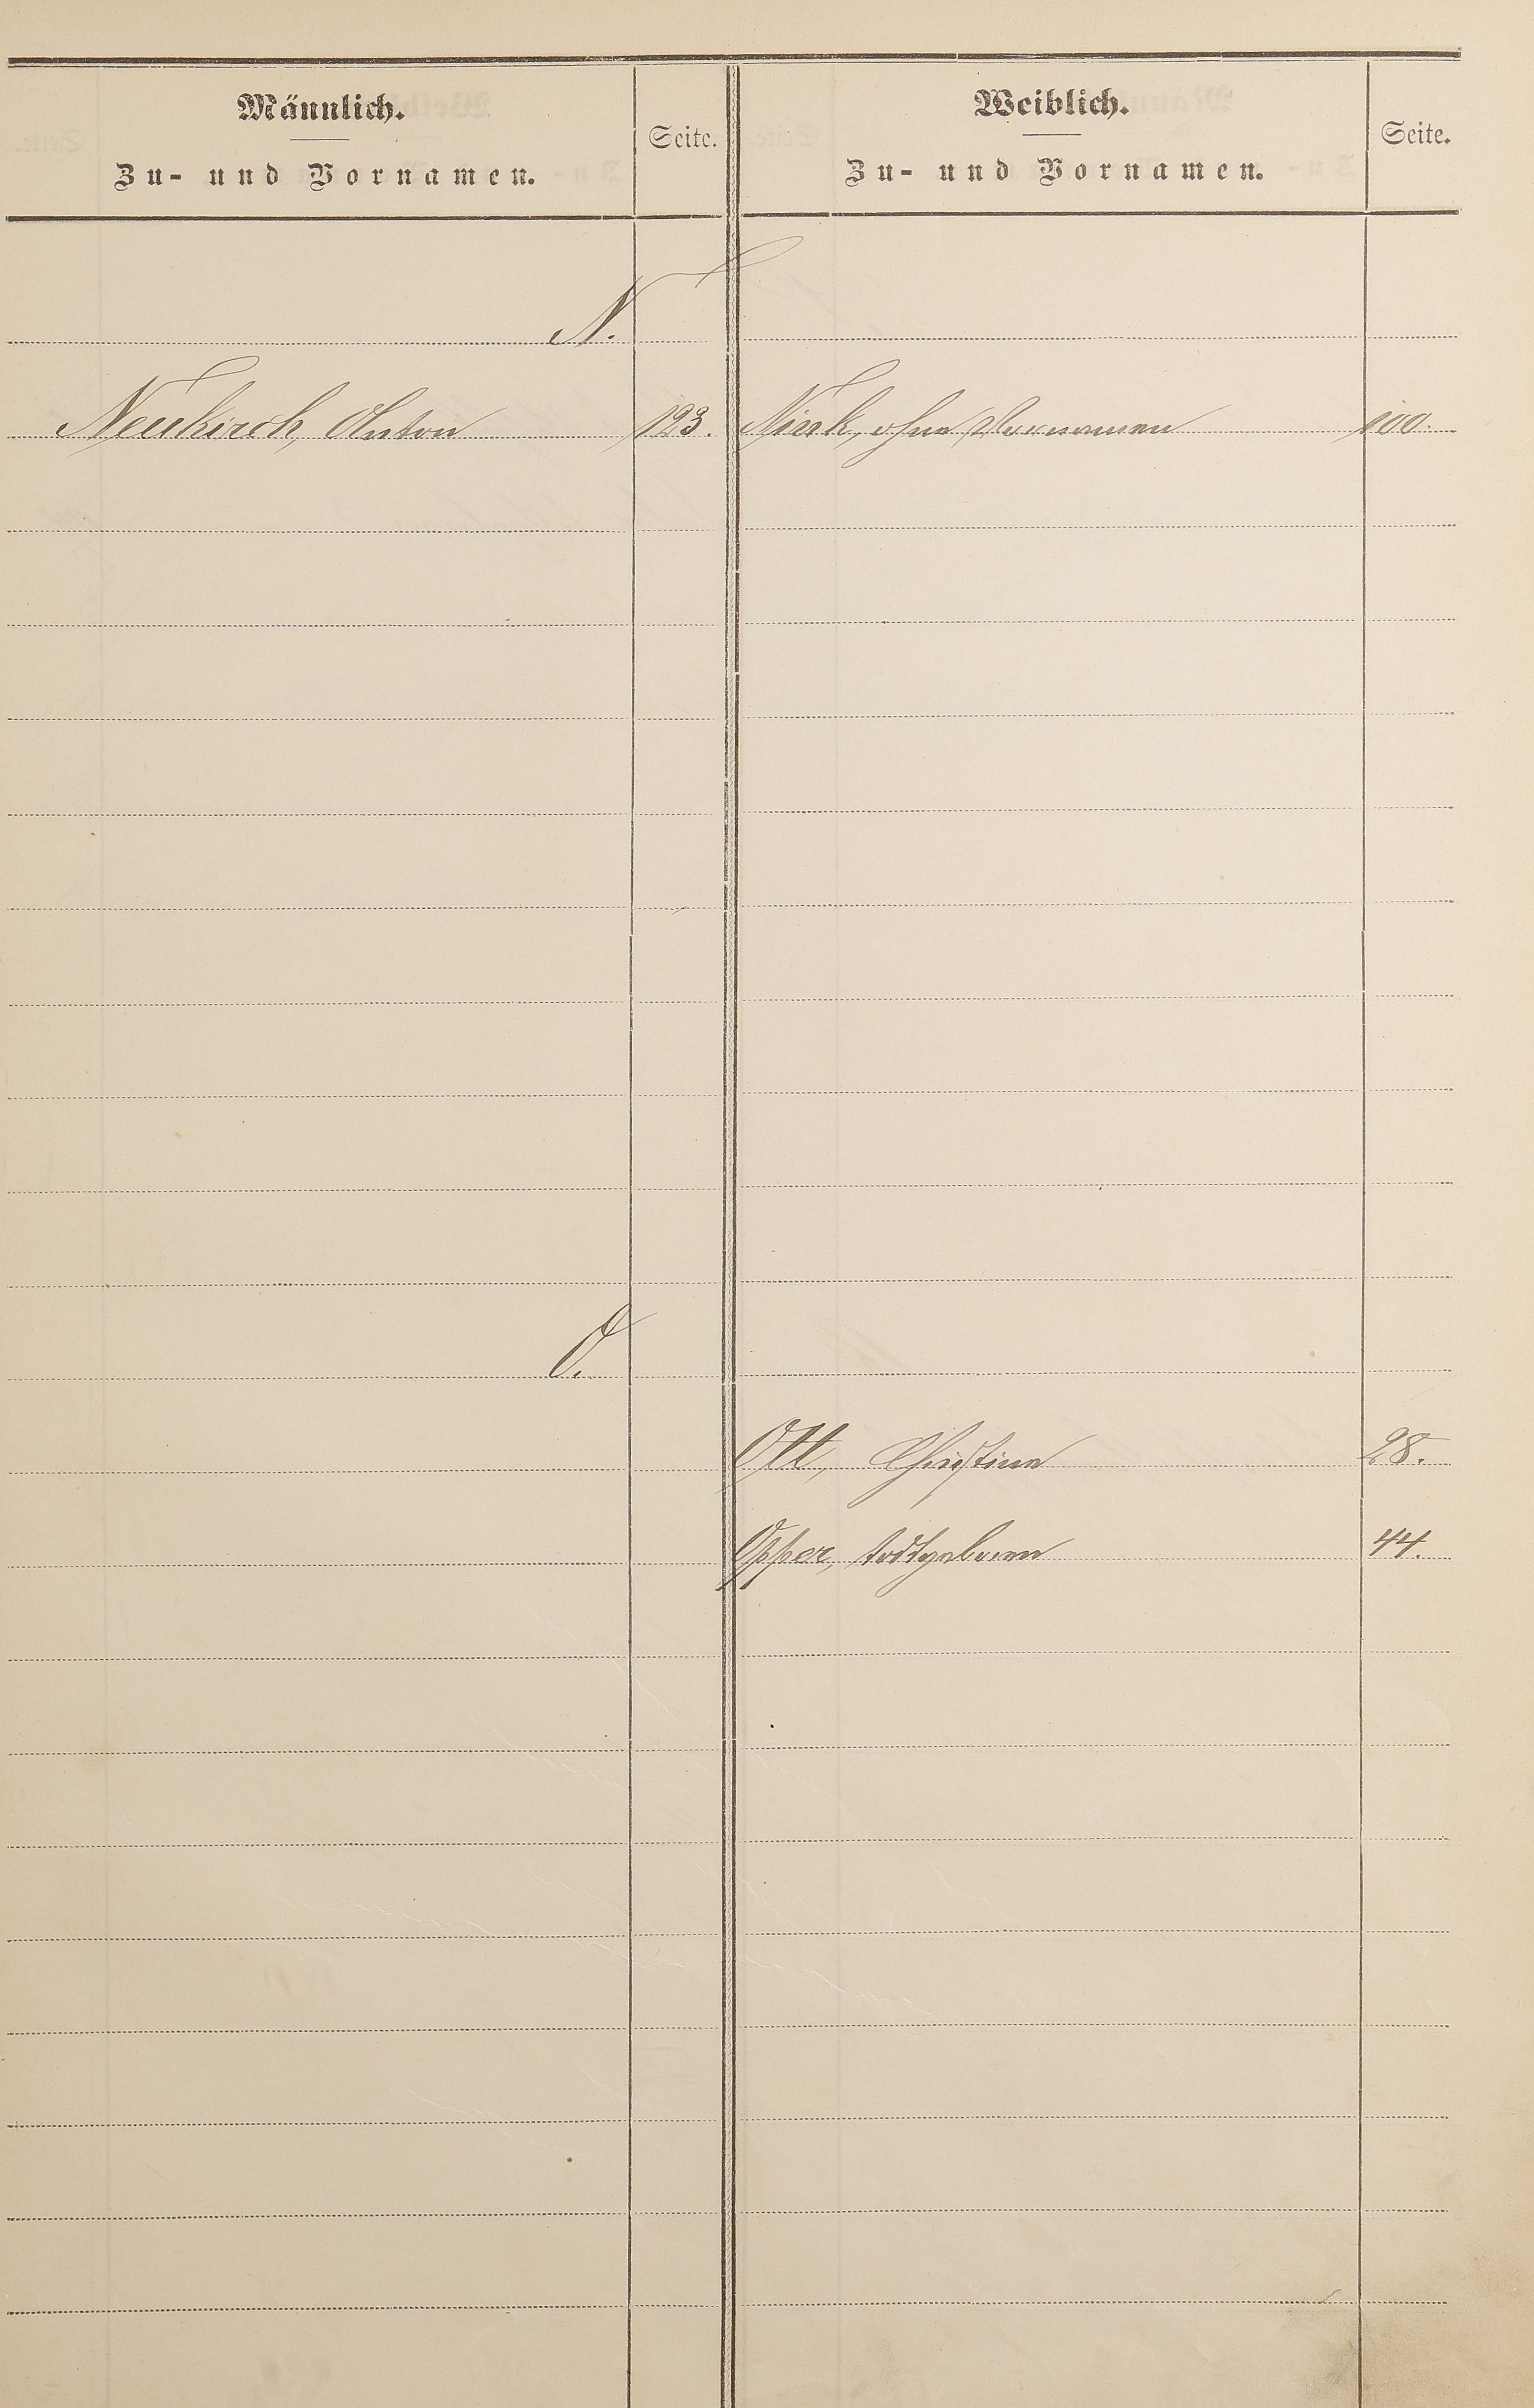 Männlich.
Zu- und Vornamen.
Seite.
Weiblich.
Zu- und Vornamen.
Seite.
N.
Neukirch, Anton 123. Nink, ohne Vornamen 100.
O.
Ott, Christine 28.
Opper, todtgeboren 44.